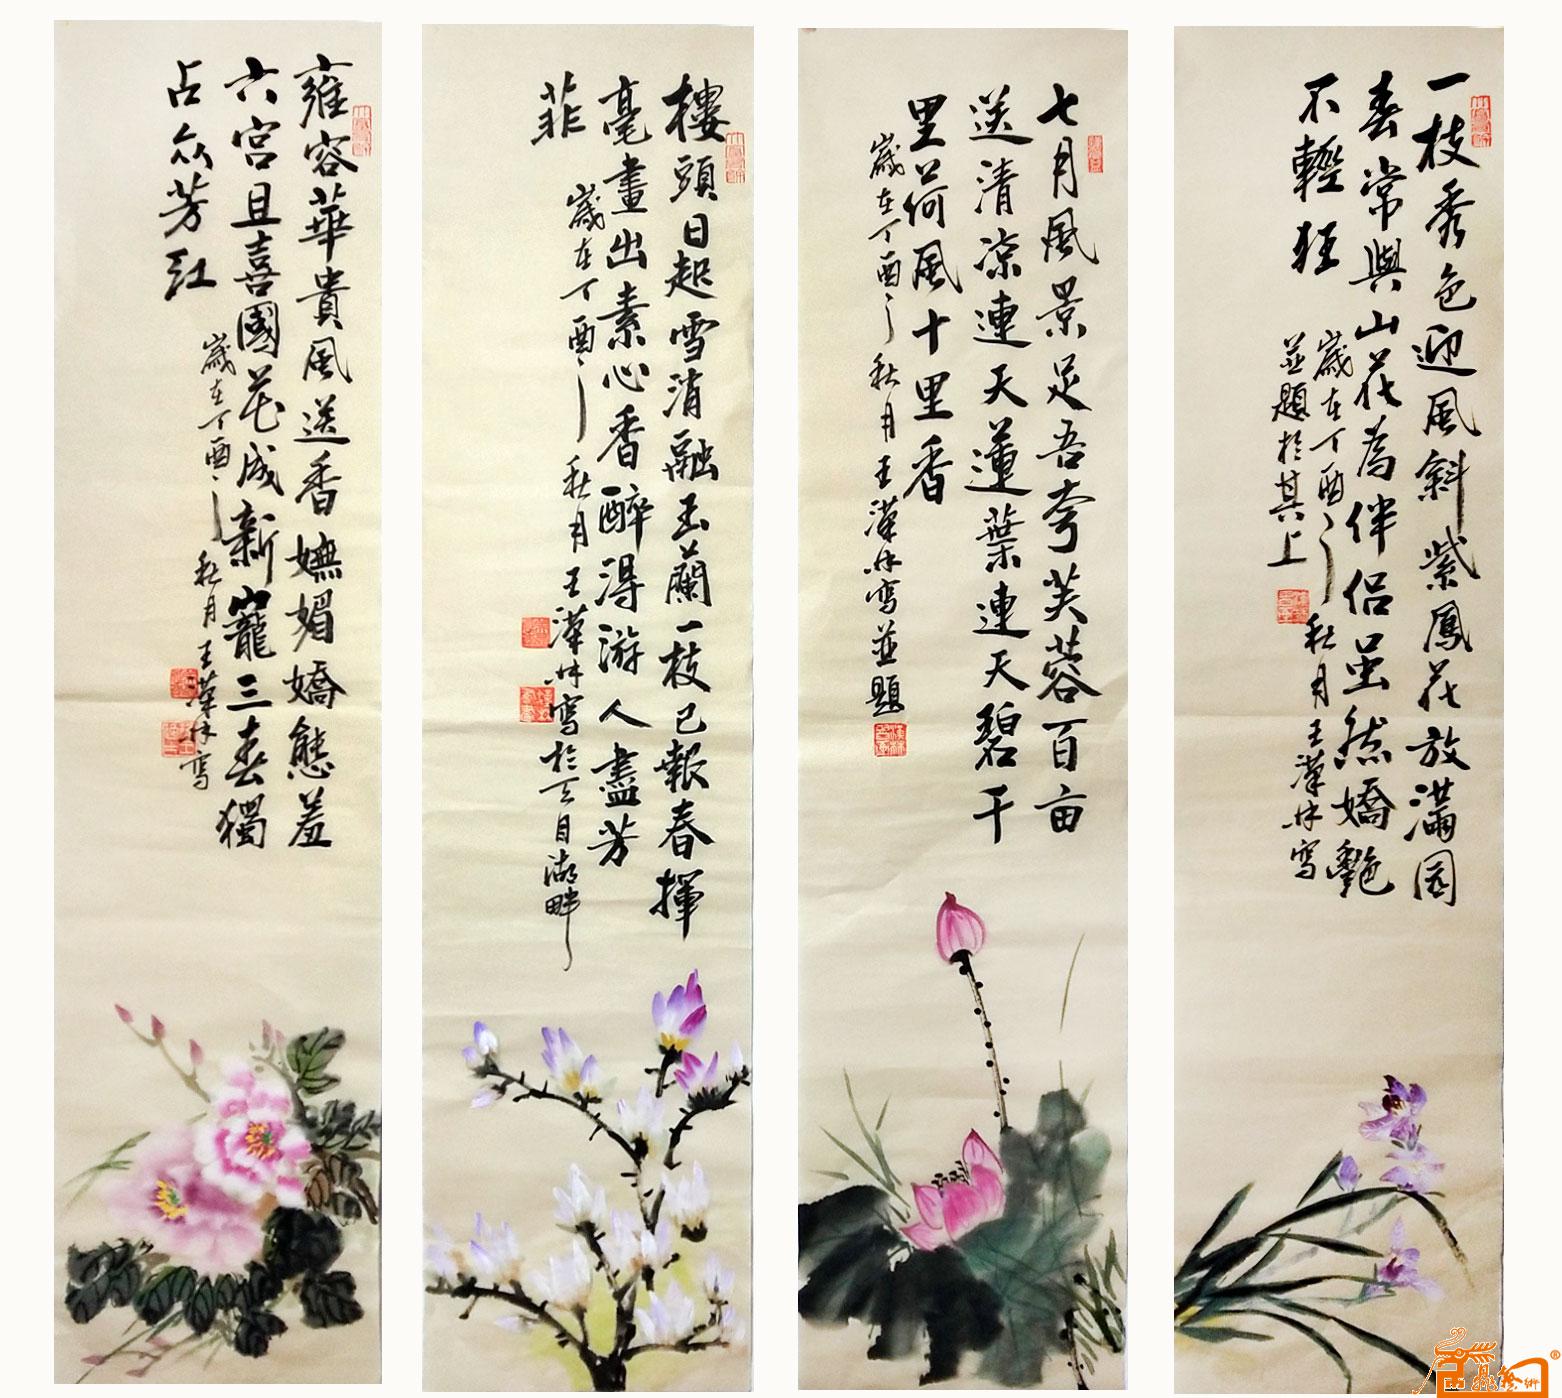 雍容華貴風送香嫵媚嬌態羞
六宮且喜國花成新寵三春獨
占众芳紅
歲在丁酉之秋月王漢林寫
樓頭日起雪消融玉蘭一枝已報春揮
毫畫出素心香醉得游人盡芳
菲
歲在丁酉之秋月王漢林寫於天目湖畔
七月風景足吾夸芙蓉百亩
送清凉連天蓮葉連天碧千
里荷風十里香
歲在丁酉之秋月王漢林寫並題
一枝秀色迎風斜紫鳳花放滿园
春常與山花為伴侣虽然嬌艷
不輕狂
歲在丁酉之秋月王漢林寫
並題於其上